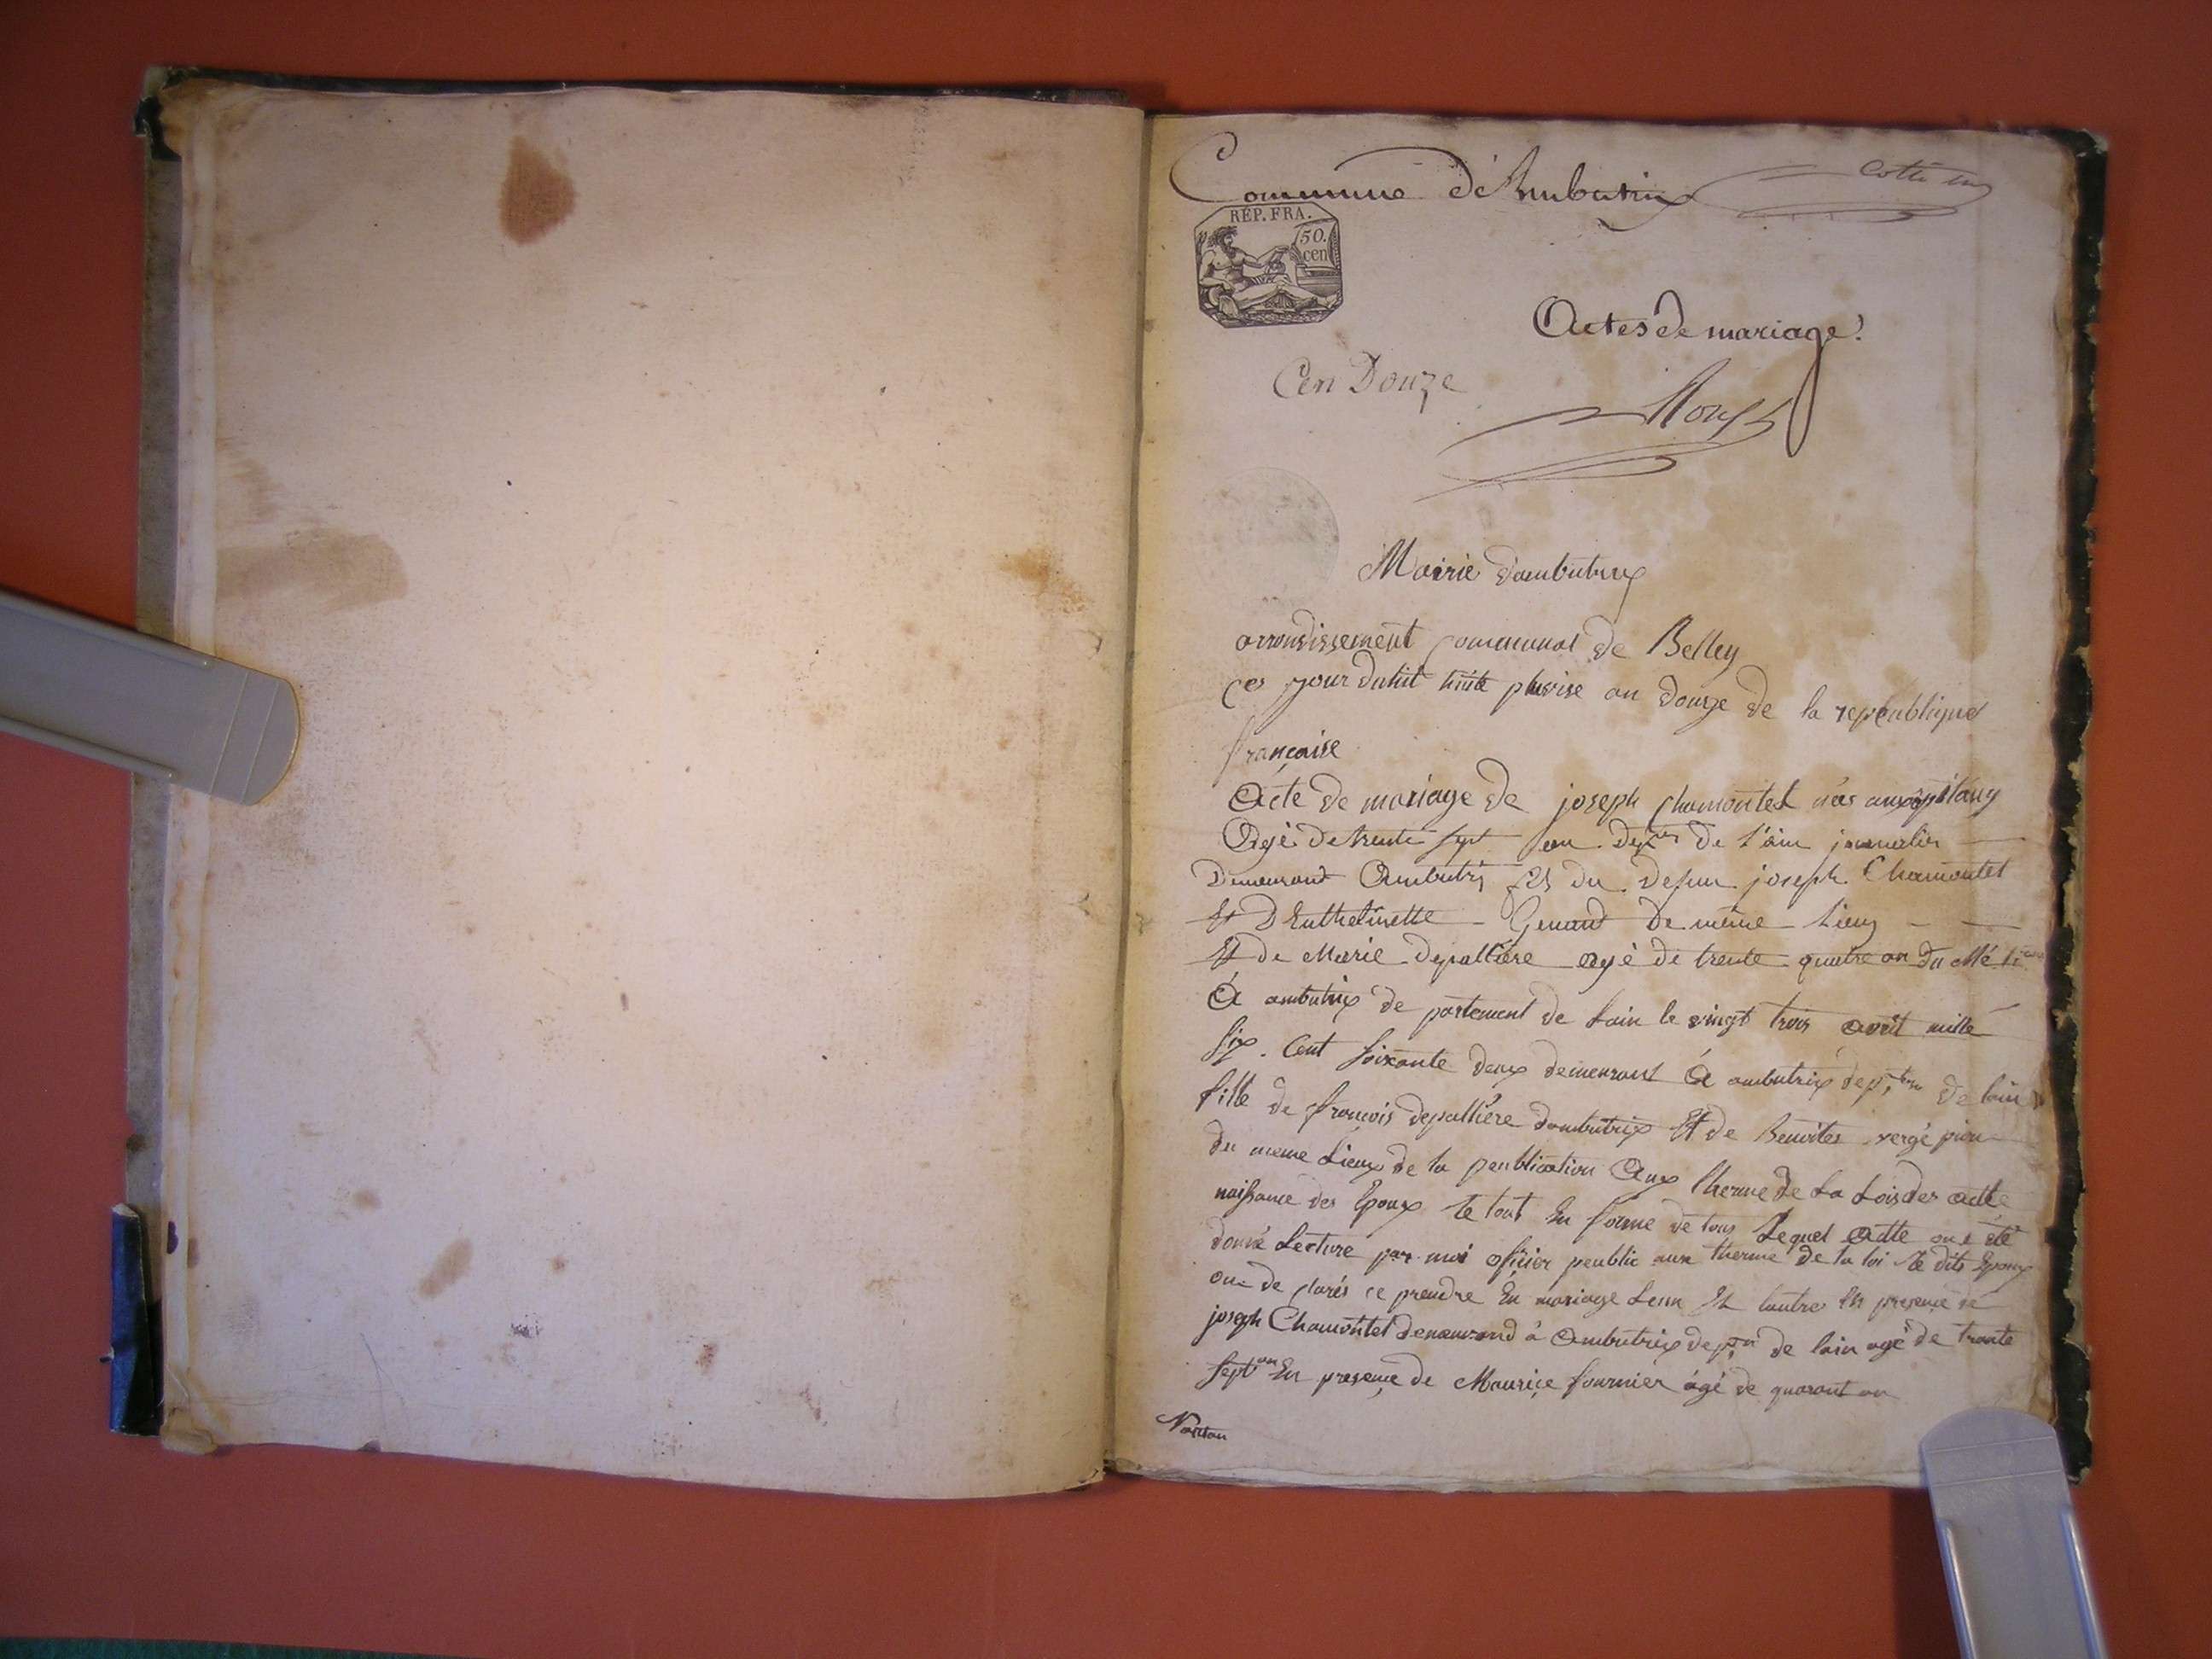 Commune d'Ambutrix
Cotte un
RÉP. FRA.
50.
cen
Actes de mariage
Cen Douze
Mairie d'ambutrix
arrondissement communal de Belley
Ce jour duhit pluvise an douze de la republique
française
Acte de mariage de joseph Chamontet
Agé de trente sept an de l'ain journalier
Demeurant Ambutrix fils du defun joseph Chamontet
Et D Genand De même Lieux
Et de Marie depallière agé de trente quatre an
A ambutrix de partement de Lain le vingt trois avril mille
six. Cent soixante deux demeurant A ambutrix de lain
fille de françois depallière dambutrix Et de Benoites vergé
du meme Lieux de la peublication Aux therme de La Lois des acte
naissance des Epoux le tout En forme de tous Lequel Acte on é été
donné Lecture par moi ofisier peublic aux therme de la loi le dits Epoux
on de clarés ce prendre En mariage Lenn Et lautres En presence de
joseph Chamontet demeurand à Ambutrix de lain agé de trante
sept an En presence de Maurice fournier agé de quarant an